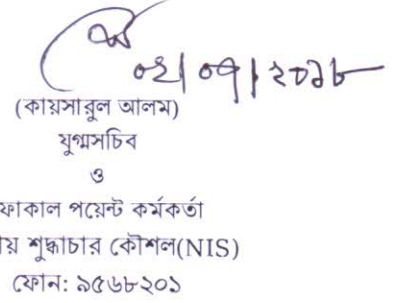 ০২/০৭/২০১৮
(কায়সারুল আলম)
যুগ্মসচিব
ও
ফোকাল পয়েন্ট কর্মকর্তা
শুদ্ধাচার কৌশল(NIS)
ফোন: ৯৫৬৮২০১